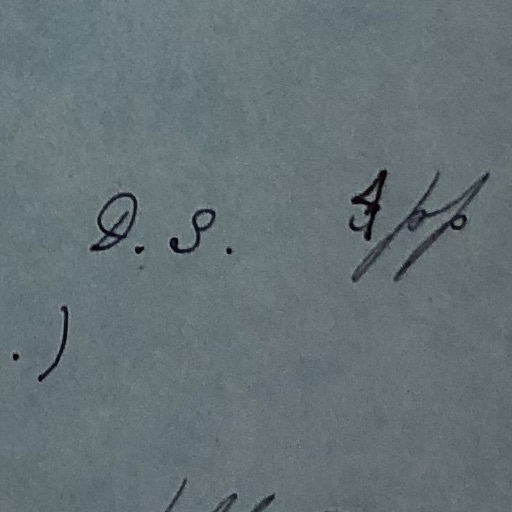 D. S. App
.)